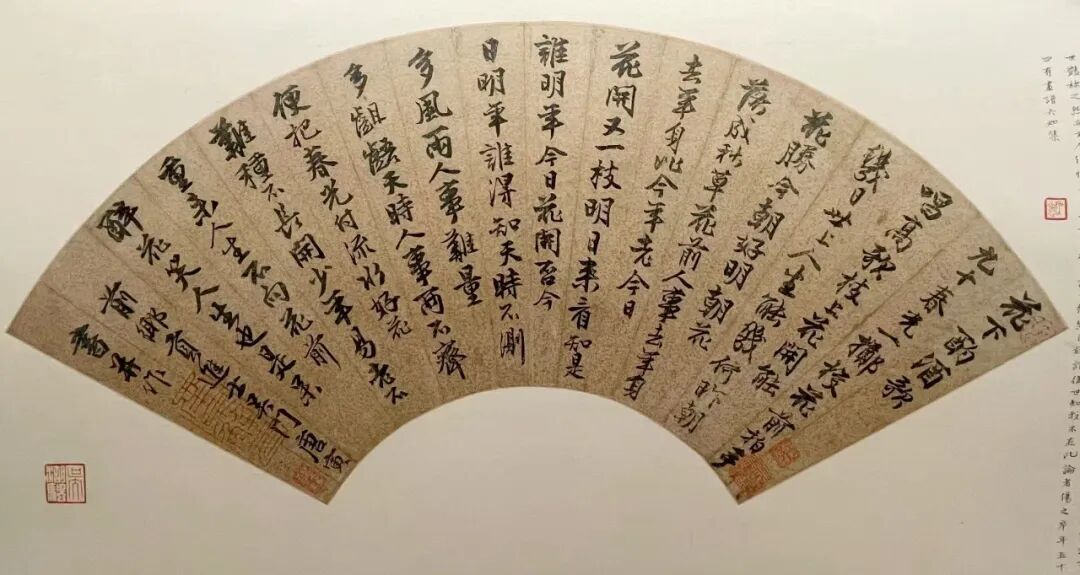 花下酌酒歌
九十春光一擲梭花前拍手
唱高歌枝上花開能
幾日世上人生能幾何昨朝
花勝今朝好明朝花
落成秋草花前人事去年身
去年身比今年老今日
花開又一枝明日來看知是
誰明年今日花開否今
日明年誰得知天時不測
多風雨人事難量
多齟齬天時人事兩不齊
便把春光付流水好花
難種不長開少年易老不
重來人生不向花前
醉花笑人生也是呆
前鄉貢進士吳門唐寅
書并作
論者傷之卒年五十
四有畫譜六如集